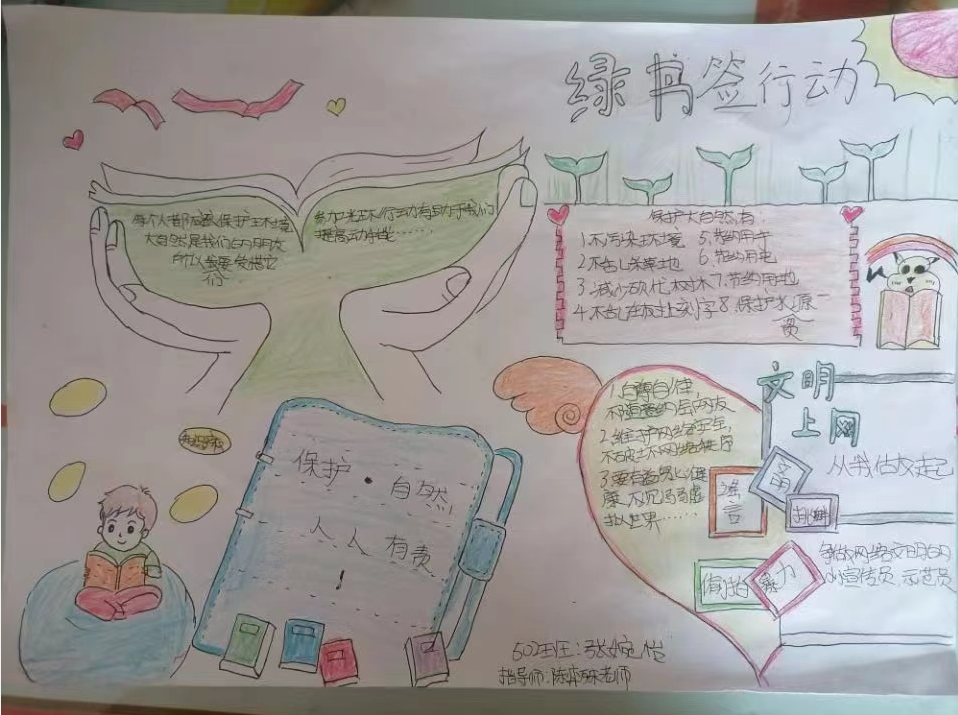 绿书签行动
每个人都应该保护环境
大自然是我们的朋友
所以要爱惜它
们
提高动手能……
保护大自然有:
1.不污染环境 5.节约用纸
2.不乱杀草地 6.节约用电
3.减少砍伐树木 7.节约用地
4.不乱在树上刻字 8.保护水源
保护·自然
人人有责
!
1.自尊自律,
2.维护网络安全,
不破坏网络秩序
3.要有益身心健
康,不沉溺虚
拟世界……
文明
上网
从我做起
谣
言
暴力
争做网络文明的
小宣传员 示范员
502班:张婉怡
指导师:陈 老师